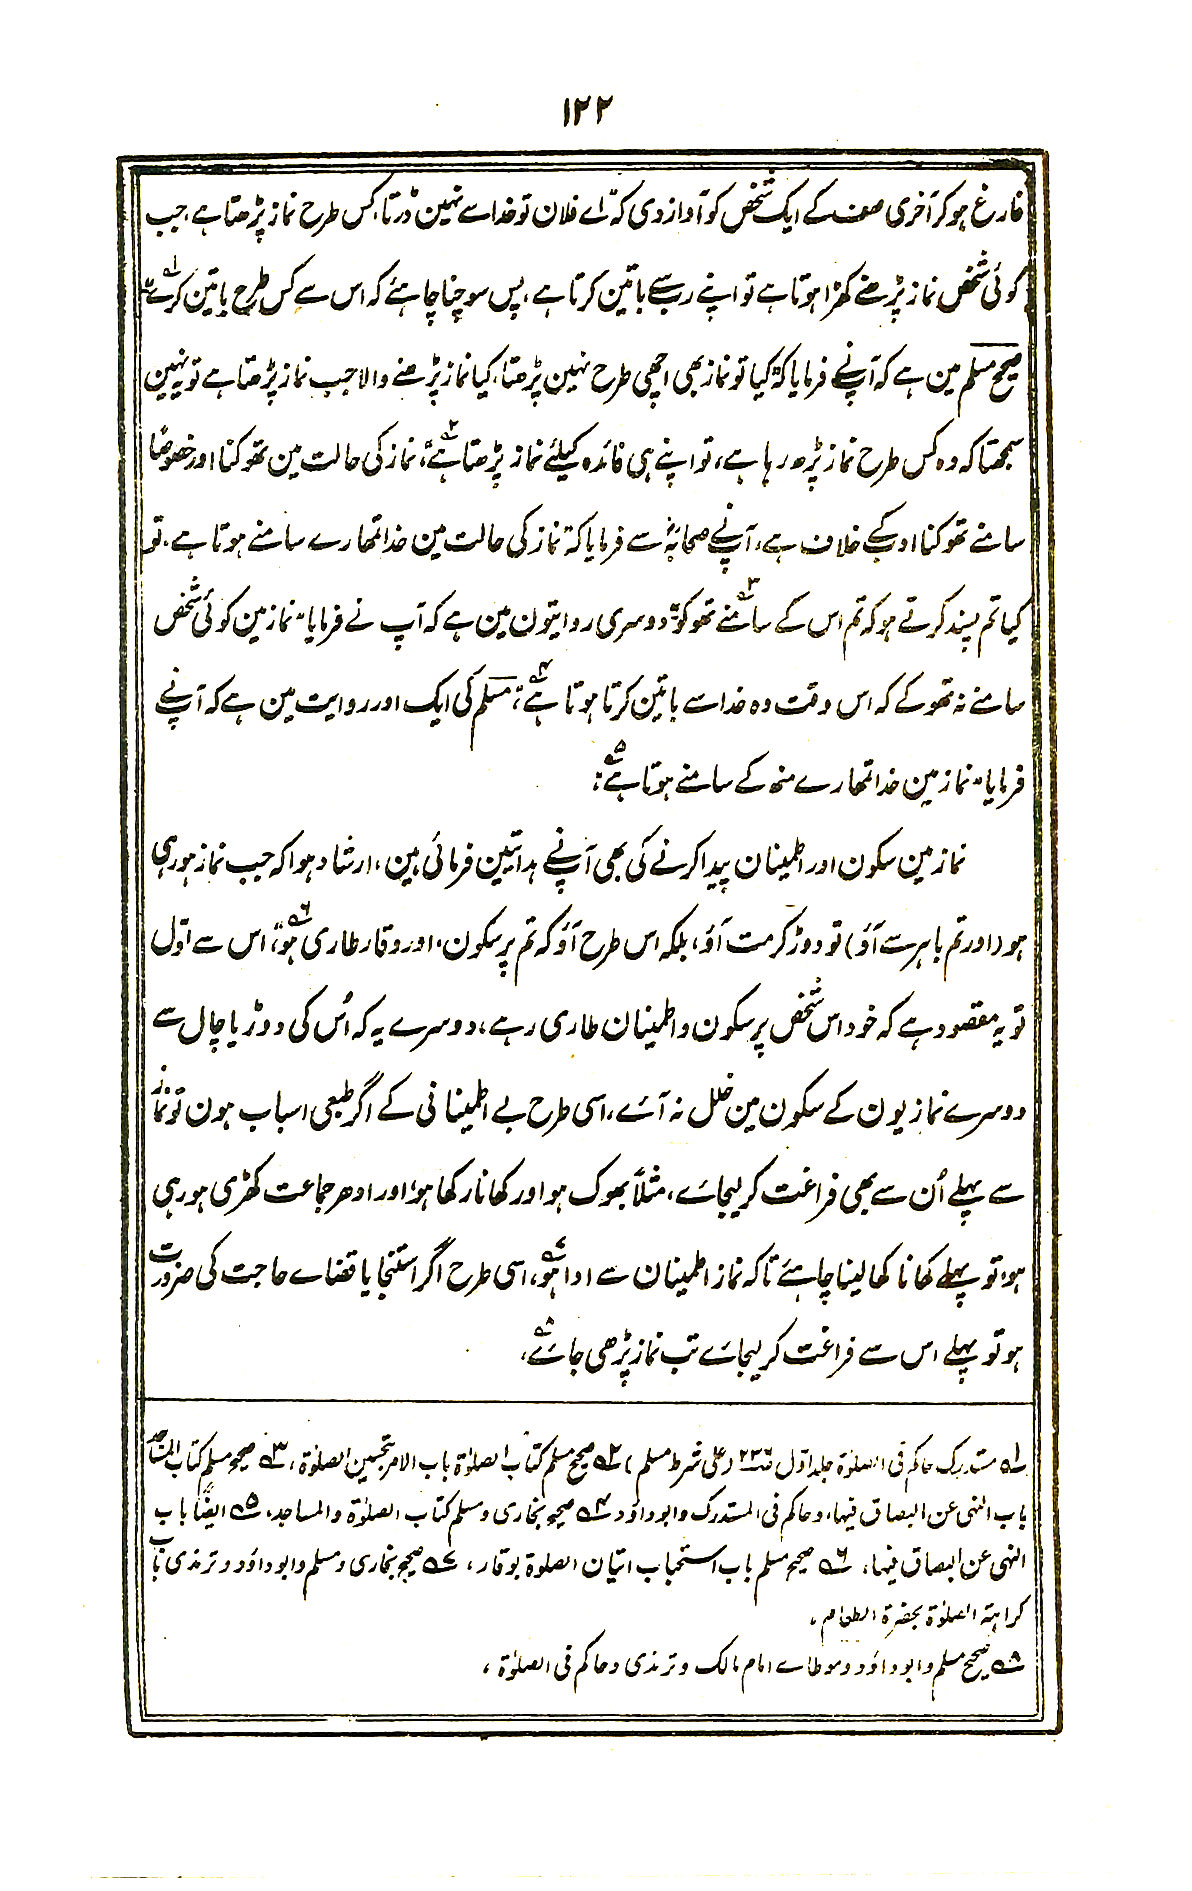 ۱۲۲
فارغ ہو کر آخری صف کے ایک شخص کو آواز دی کہ "اے فلان تو خدا سے نہین ڈرتا، کس طرح نماز پڑھتا ہے، جب
کوئی شخص نماز پڑھنے کھڑا ہوتا ہے تو اپنے رب سے باتین کرتا ہے، پس سوچنا چاہئے کہ اس سے کس طرح باتین کرے"۱؎
صحیح مسلم مین ہے کہ آپنے فرمایا کہ "کیا تو نماز بھی اچھی طرح نہین پڑھتا، کیا نماز پڑھنے والا جب نماز پڑھتا ہے تو یہ نہین
سمجھتا کہ وہ کس طرح نماز پڑھ رہا ہے، تو اپنے ہی فائدہ کیلئے نماز پڑھتا ہے"۲؎، نماز کی حالت مین تھوکنا اور خصوصًا
سامنے تھوکنا ادب کے خلاف ہے، آپنے صحابہؓ سے فرمایا کہ "نماز کی حالت مین خدا تمھارے سامنے ہوتا ہے، تو
کیا تم پسند کرتے ہو کہ تم اس کے سامنے تھوکو"۳؎ دوسری روایتون مین ہے کہ آپ نے فرمایا "نماز مین کوئی شخص
سامنے نہ تھوکے کہ اس وقت وہ خدا سے باتین کرتا ہوتا ہے"۴؎، مسلم کی ایک اور روایت مین ہے کہ آپنے
فرمایا "نماز مین خدا تمھارے منھ کے سامنے ہوتا ہے"۵؎:
نماز مین سکون اور اطمینان پیدا کرنے کی بھی آپنے ہدایتین فرمائی ہین، ارشاد ہوا کہ جب نماز ہو رہی
ہو (اور تم باہر سے آؤ) تو دوڑ کر مت آؤ، بلکہ اس طرح آؤ کہ تم پر سکون، اور وقار طاری ہو"۶؎، اس سے اوّل
تو یہ مقصود ہے کہ خود اس شخص پر سکون و اطمینان طاری رہے، دوسرے یہ کہ اُس کی دوڑ یا چال سے
دوسرے نمازیون کے سکون مین خلل نہ آئے، اسی طرح بے اطمینانی کے اگر طبعی اسباب ہون تو نماز
سے پہلے اُن سے بھی فراغت کر لیجائے، مثلاً بھوک ہو اور کھانا رکھا ہو، اور ادھر جماعت کھڑی ہو رہی
ہو، تو پہلے کھانا کھا لینا چاہئے تاکہ نماز اطمینان سے ادا ہو۷؎، اسی طرح اگر استنجا یا قضاے حاجت کی ضرورت
ہو تو پہلے اس سے فراغت کر لیجائے تب نماز پڑھی جائے۸؎،
۱؎ مستدرک حاکم فی الصلوٰۃ جلد اوّل ص۲۳۶ (علی شرط مسلم) ۲؎ صحیح مسلم کتاب الصلوٰۃ باب الامر بتحسین الصلوٰۃ، ۳؎ صحیح مسلم کتاب المساجد
باب النہی عن البصاق فیہا، و حاکم فی المستدرک و ابوداؤد ۴؎ صحیح بخاری و مسلم کتاب الصلوٰۃ والمساجد، ۵؎ ایضًا باب
النہی عن البصاق فیہا، ۶؎ صحیح مسلم باب استحباب اتیان الصلوٰۃ بوقار، ۷؎ صحیح بخاری و مسلم و ابوداؤد و ترمذی باب
کراہتہ الصلوٰۃ بحضرۃ الطعام،
۸؎ صحیح مسلم و ابوداؤد و موطاے امام مالک و ترمذی و حاکم فی الصلوٰۃ،